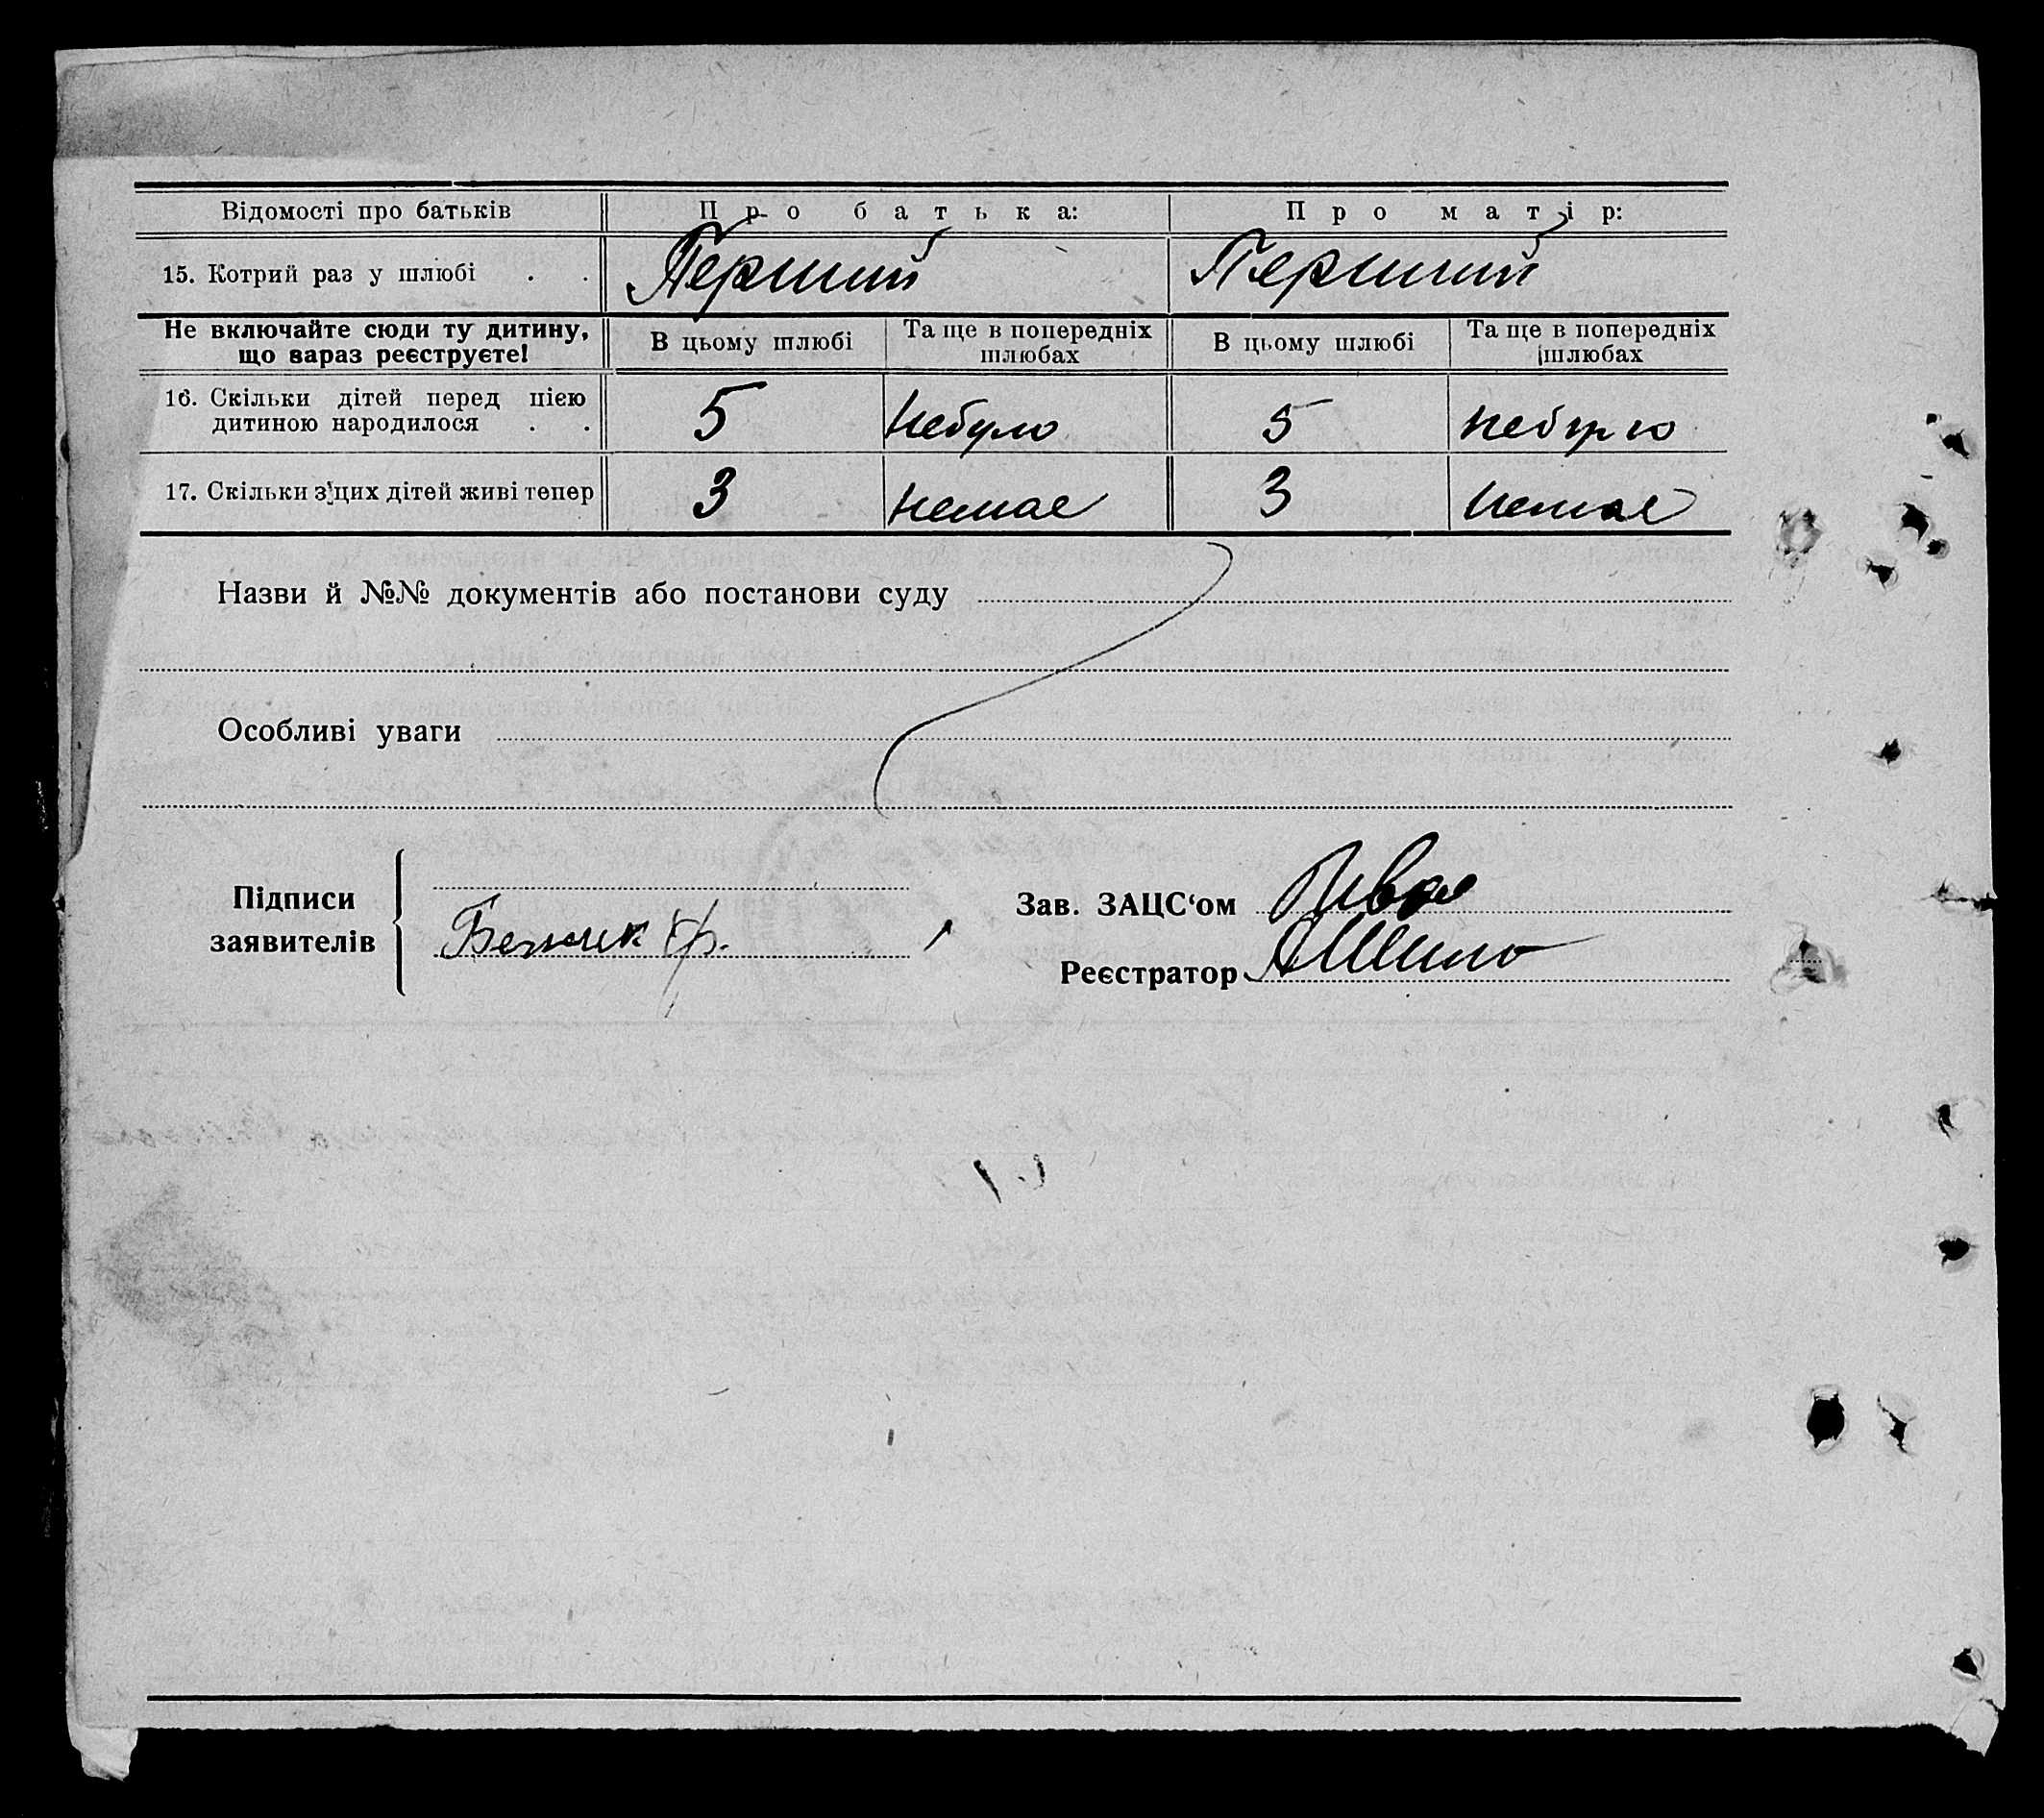 Відомості про батьків Про батька: Про матір:
15. Котрий раз у шлюбі . . Перший Перший
Не включайте сюди ту дитину, що зараз реєструєте! В цьому шлюбі Та ще в попередніх шлюбах В цьому шлюбі Та ще в попередніх шлюбах
16. Скільки дітей перед цією
дитиною народилося . . 5 небуло 5 небуло
17. Скільки з цих дітей живі тепер 3 немає 3 немає
Назви й №№ документів або постанови суду
Особливі уваги
Підписи
заявителів
Зав. ЗАЦС‘ом
Реєстратор